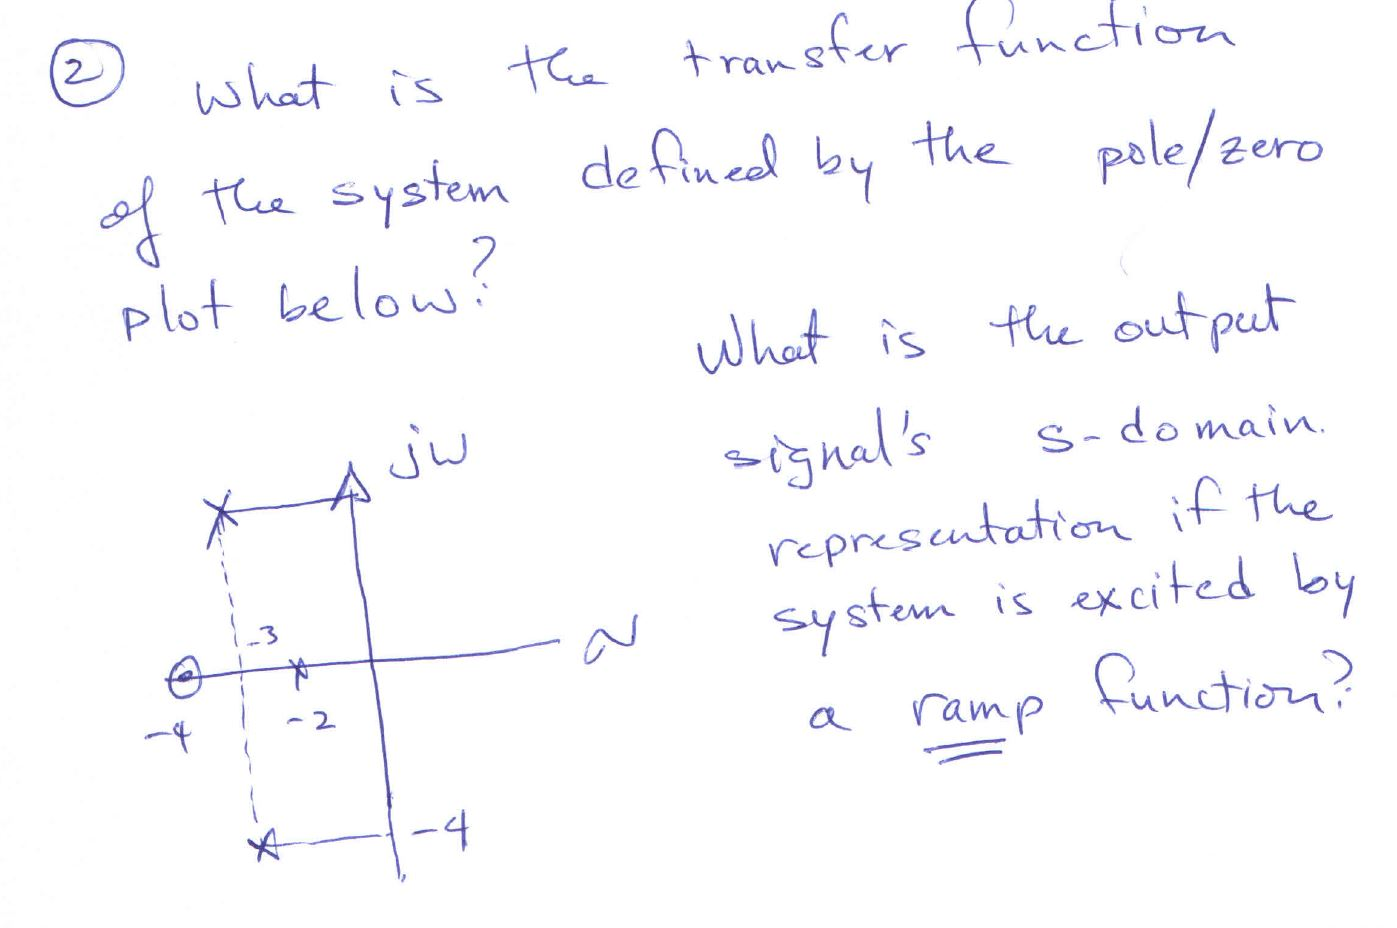 2 What is the transfer function
of the system defined by the pole/zero
plot below?
What is the output
signal's s-domain.
representation if the
system is excited by
a ramp function?
jw
-3
-4
-2
-4